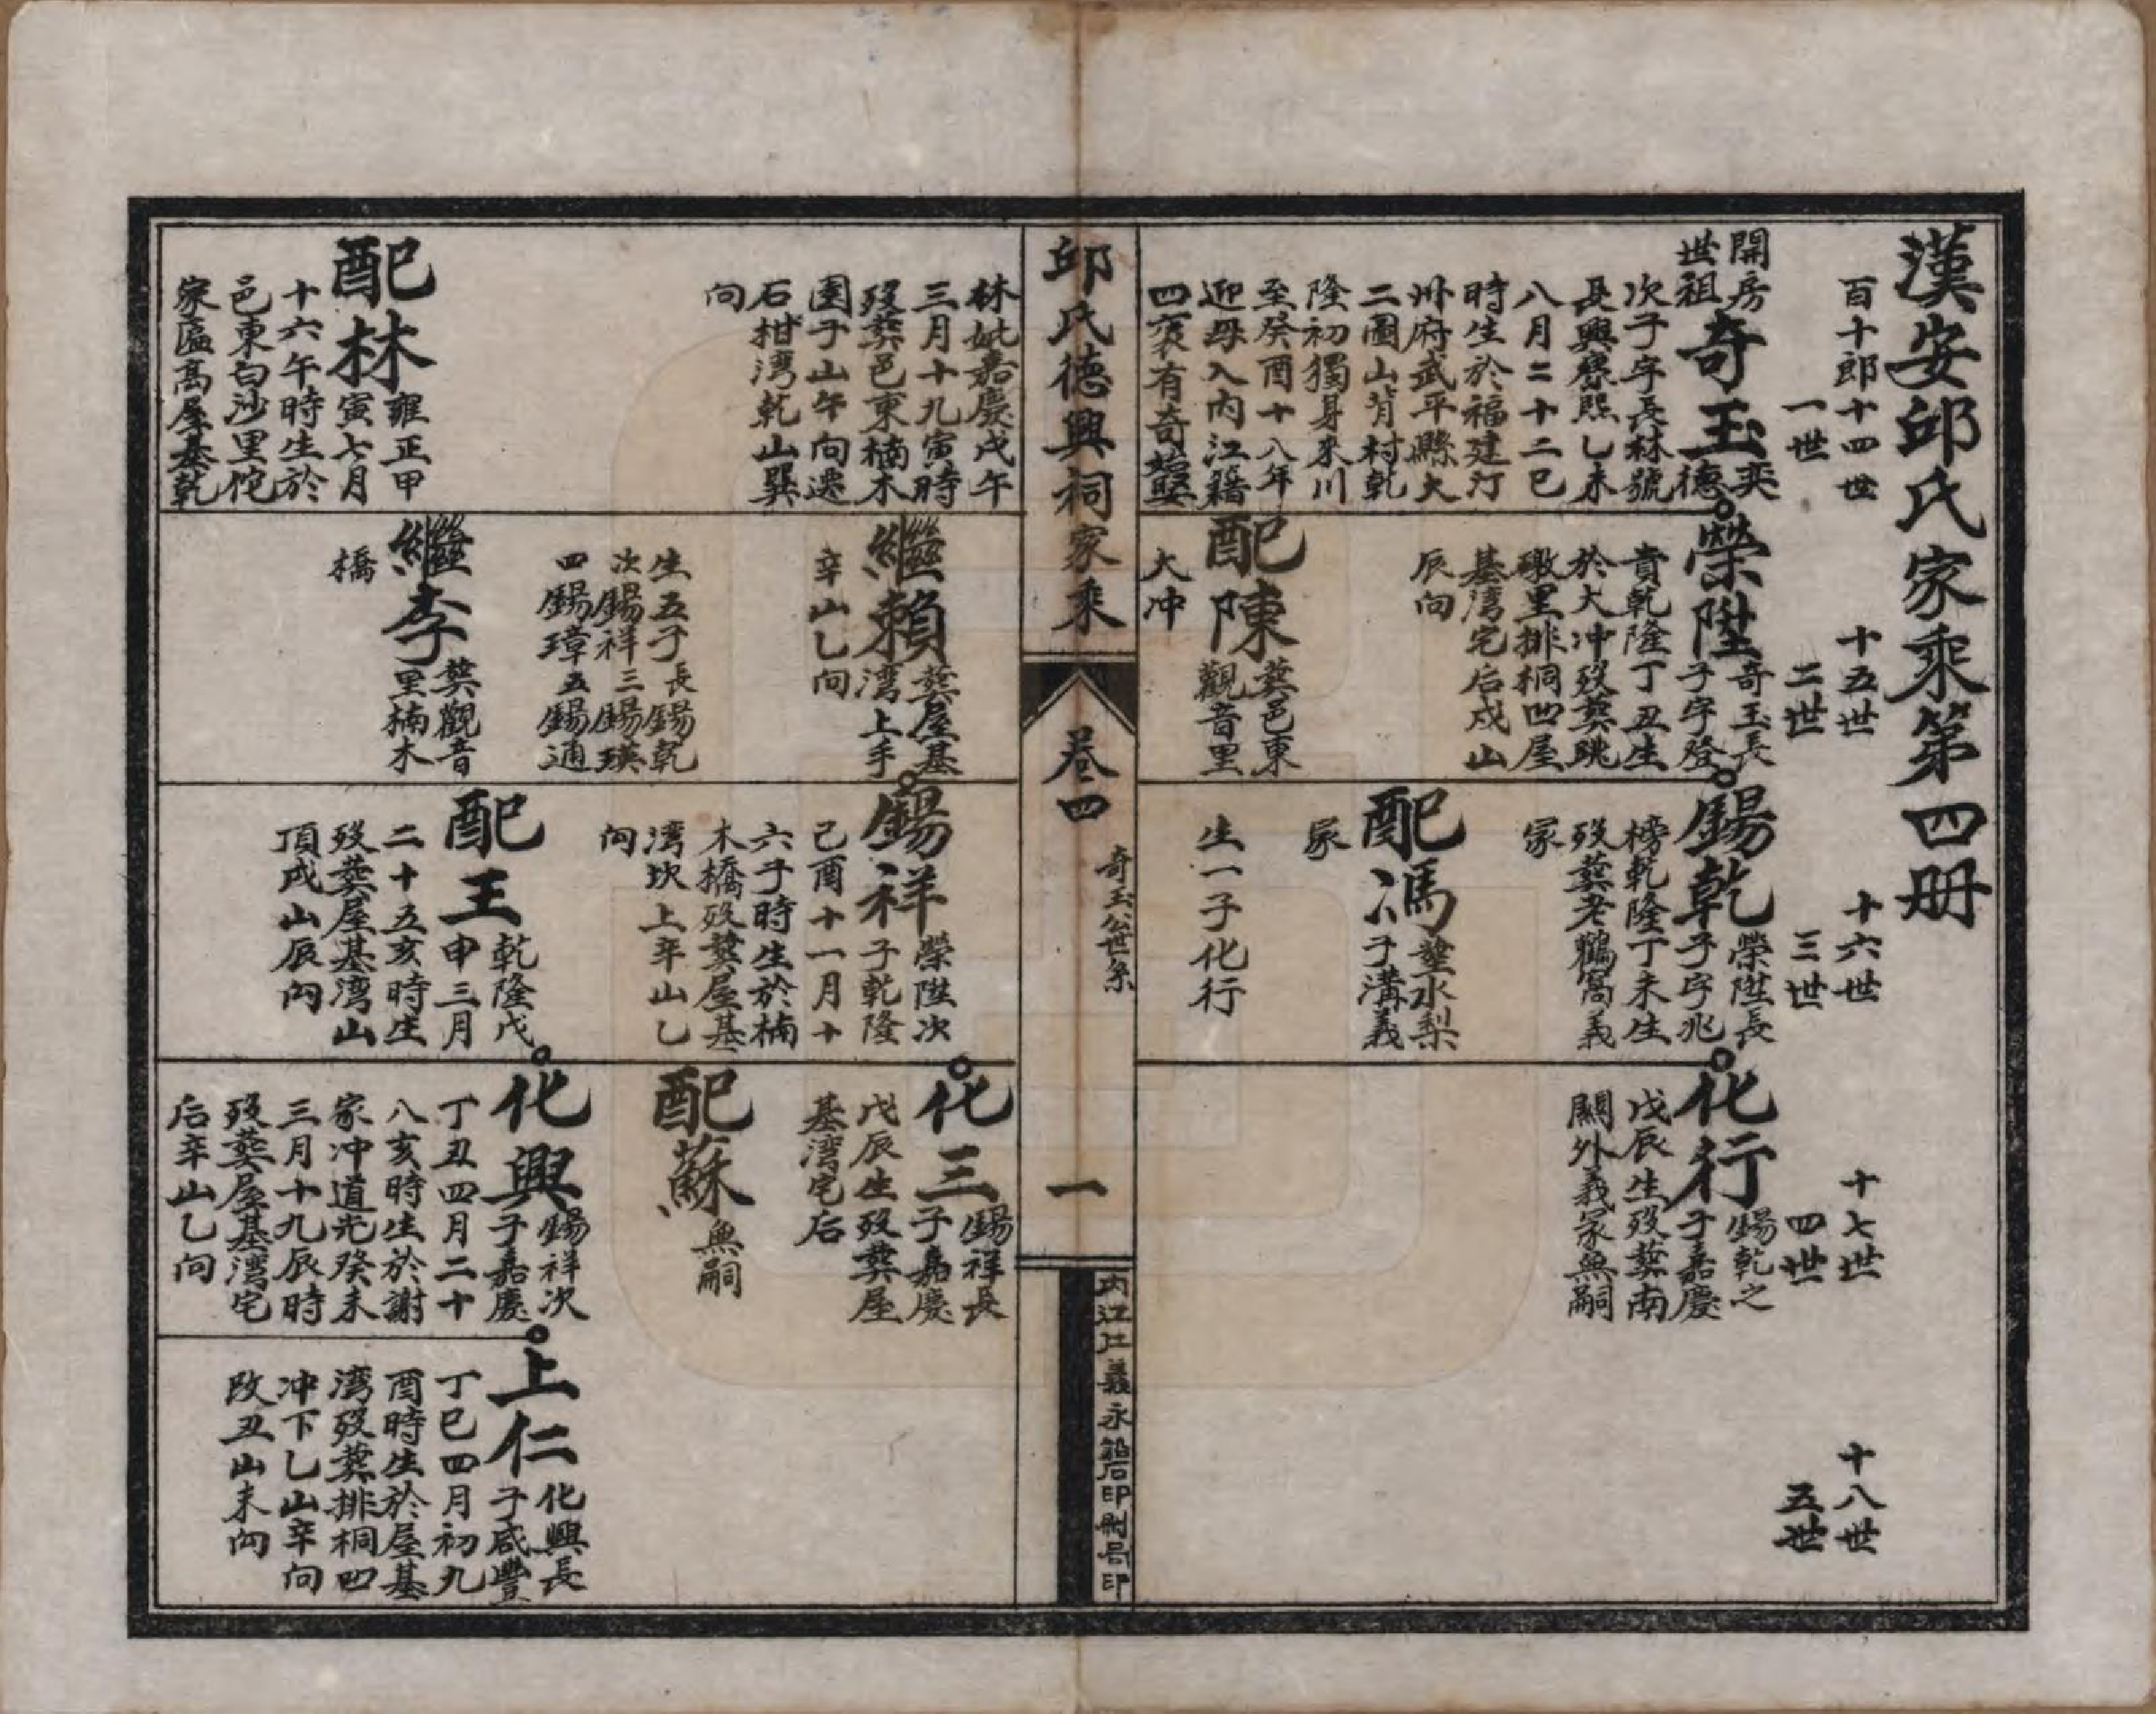 漢安邱氏家乘第四册
百十郎十四世
一世
十五世
二世
十六世
三世
十七世
四世
十八世
五世
開房
世祖
奇玉
奕
德
次子字長林號
長興寮熙乙未
八月二十二巳
時生於福建汀
州府武平縣大
二圖山背村乾
隆初獨身來川
至癸酉十八年
迎母入內江籍
四衰有奇始娶
榮陞
奇玉長
子字登
貴乾隆丁丑生
於大冲歿葬跳
磴里排桐凹屋
基湾宅后戍山
辰向
配陳
葬邑東
觀音里
大冲
錫乾
榮陞長
子字兆
榜乾隆丁未生
歿葬老鸛窩義
冢
配馮
塟水梨
子溝義
冢
生一子化行
化行
錫乾之
子嘉慶
戊辰生歿葬南
關外義冢無嗣
邱氏德興祠家乘
卷四
奇玉公世系
一
內江江義永鉛石印刷局印
林妣嘉慶戊午
三月十九寅時
歿葬邑東楠木
園子山午向遷
石柑湾乾山巽
向
配林
雍正甲
寅七月
十六午時生於
邑東白沙里佗
家區高屋基乾
繼賴
葬屋基
湾上手
辛山乙向
生五子長錫乾
次錫祥三錫瑛
四錫璋五錫通
繼李
葬觀音
里楠木
橋
錫祥
榮陞次
子乾隆
己酉十一月十
六子時生於楠
木橋歿葬屋基
湾坎上辛山乙
向
配王
乾隆戊
申三月
二十五亥時生
歿葬屋基湾山
頂戍山辰向
化三
錫祥長
子嘉慶
戊辰生歿葬屋
基湾宅后
配蘇
無
嗣
化興
錫祥次
子嘉慶
丁丑四月二十
八亥時生於謝
家冲道光癸未
三月十九辰時
歿葬屋基湾宅
后辛山乙向
上仁
化興長
子咸豐
丁巳四月初九
酉時生於屋基
湾歿葬排桐凹
冲下乙山辛向
改丑山未向